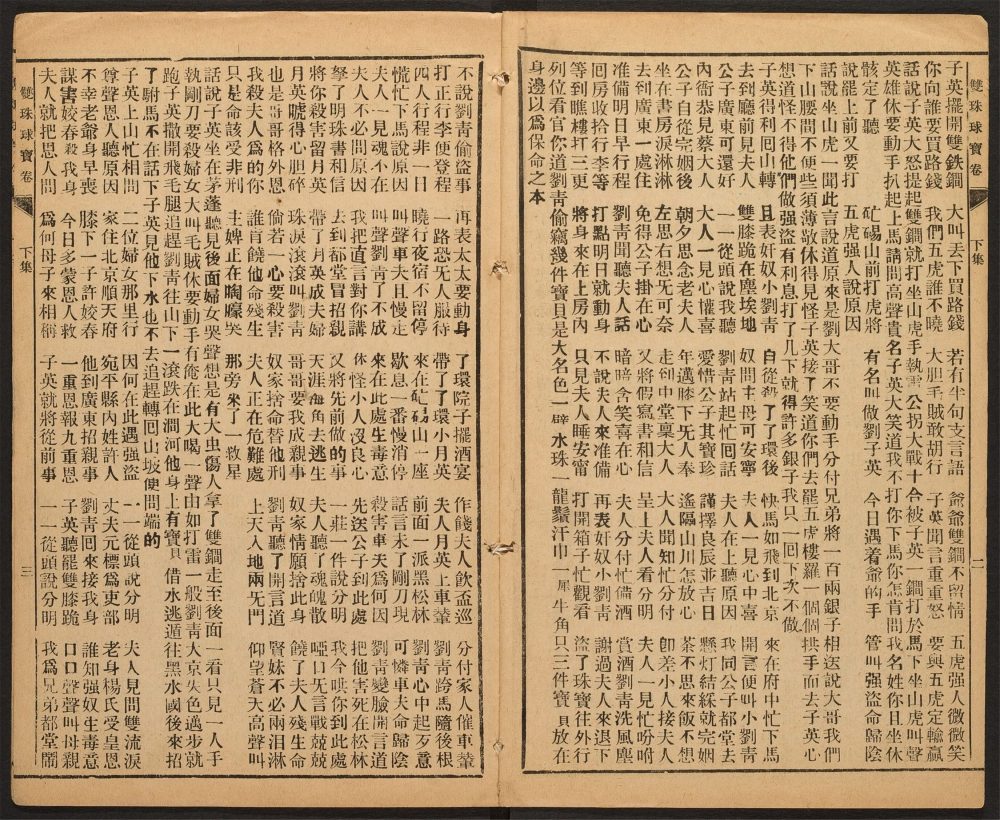 雙珠球寶卷 下集 二
子英擺開雙鉄鐧 大叫去下買路錢 若有半句支言語 爺爺雙鐧不留情 五虎强人微微笑
你向誰要買路錢 我們五虎誰不曉 大胆毛賊敢胡行 子英聞言重重怒 要與五虎定輸贏
話說子英大怒提起雙鐧就打坐山虎手執雲公拐大戰十合被子英一鐧打於馬下坐山虎叫聲
英雄休要動手扒起上馬請問高聲貴名子英大笑道我不打你下馬你怎肯問我名姓你日坐休
骸定了聽 硭碭山前打虎將 有名叫做劉子英 今日遇着爺的手 管叫强盗命歸陰
說罷上前又要打 五虎强人說原因
話說坐山虎一聞此言說道原來是劉大哥不要動手分付兄弟將一百兩銀子相送說大哥我們
下山腰間不便些須薄敬休得見怪子英接了笑道你們去罷五虎樓羅一個個拱手而去子英心
想道怪不得他們做强盗有利息打了几下就得許多銀子我只一回下次不做
子英得利回山轉 且表奸奴小劉青 自從殺了了環後 快馬如飛到北京 來在府中忙下馬
去到廳前見夫人 雙膝跪在塵埃地 奴問主母可安寧 夫人一見心中喜 開言便叫小劉青
公子廣東可還好 一一從頭說我聽 劉青站起忙回話 夫人在上聽原因 我同公子都堂去
內衙恭見蔡大人 大人一見心懽喜 愛惜公子其寶珍 謹擇良辰並吉日 懸灯結綵就完姻
公子自從完姻後 朝夕思念老夫人 年邁膝下旡人奉 遙隔山川怎放心 茶不思來飯不想
坐在書房淚淋淋 左思右想旡可奈 走到中堂稟大人 大人聞知忙分付 卽差小人接夫人
去到廣東一處住 免得公子掛在心 又將假寫書和信 呈上夫人看分明 夫人一見忙吩咐
准備明日早行程 劉青聞聽夫人話 暗暗含笑喜在心 夫人分付忙備酒 賞酒劉青洗風塵
回房收拾行李等 打點明日動身行 不說夫人來准備 再表奸奴小劉青 謝過夫人來退下
等到樵樓打三更 將身來在上房內 只見夫人睡安甯 打開箱子忙觀看 盗了珠寶往外行
列位看官你道劉青偷竊幾件寶貝是大名色一辟水珠一龍鬚汗巾一犀牛角只三件寶貝放在
身邊以爲保命之本
不說劉青偷盗事 再表太太要動身 了環院子擺酒宴 作餞夫人飲盃巡 分付家人催車輦
打正行李便登程 一路恐旡人服待 帶了了環小月英 夫人月英上車輦 劉青跨馬隨後根
四人行程非一日 曉行夜宿不留停 來在硭碭山一座 前面一派黑松林 劉青心中起歹意
慌忙下馬說原因 叫聲車夫且慢走 歇息一番慢消停 話言未了剛刀現 可憐車夫命歸陰
夫人一見魂不在 叫聲劉青了不成 來在此處生毒意 殺害車夫爲何因 劉青變臉開言道
夫人不必問原因 我把直言對你講 休怪小人沒良心 先送公子到此處 把他害死在松林
拏了明珠書和信 去到都堂冒招親 又將先前做的事 一莊一件說分明 我今哄你到此處
將你殺害留月英 帶了月英成夫婦 天涯海角去逃生 夫人聽了魂魄散 啞口旡言戰兢兢
月英唬得心胆碎 珠淚滾滾叫劉青 哥哥要我成親事 奴家情願捨此身 饒了夫人殘生命
也是哥哥格外恩 倘若一心要殺害 奴家捨命替他刑 劉青聽了開言道 賢妹不必兩泪淋
我殺夫人爲的你 誰肯饒他命殘生 夫人正在危難處 上天入地兩旡門 仰望蒼天高聲叫
只是命該受非刑 主婢正在啕嚎哭 那旁來了一救星
話說子英坐在茅蓬聽見後面婦女哭聲想是有大虫傷人拿了雙鐧走至後面一看只見一人手
執剛刀要殺婦女大叫毛賊休要動手有俺在此大喝一聲由如打雷一般劉青大京失色邁步就
跑子英撒開飛毛腿追趕劉青往山下一滾跌在澗河他身上有寶貝借水逃遁往黑水國後來招
了駙馬不在話下子英見他下水也不去追趕轉回山坡便問端的
子英上山忙相問 二位婦女那里行 因何在此遇强盗 一一從頭說分明 夫人見問雙流淚
尊聲恩人聽原因 家住北京順天府 宛平縣內姓許人 丈夫元標爲吏部 老身楊氏受皇恩
不幸老爺身早喪 膝下一子許姣春 他到廣東招親事 劉青回來接我身 誰知强奴生毒意
謀害姣春殺我身 今日多蒙恩人救 一重恩報九重恩 子英聽罷雙膝跪 口口聲聲叫母親
夫人就把恩人問 爲何母子來相稱 子英就將從前事 一一從頭說分明 我爲兄弟都堂閙
雙珠球寶卷 下集 三